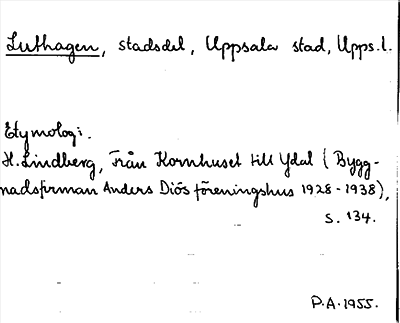 Luthagen, stadsdel, Uppsala stad, Upps.l.
Etymologi.
H. Lindberg, Från Kornhuset till Ydal (Bygg-
nadsfirman Anders Diös föreningshus 1928-1938),
s. 134.
P.A. 1955.